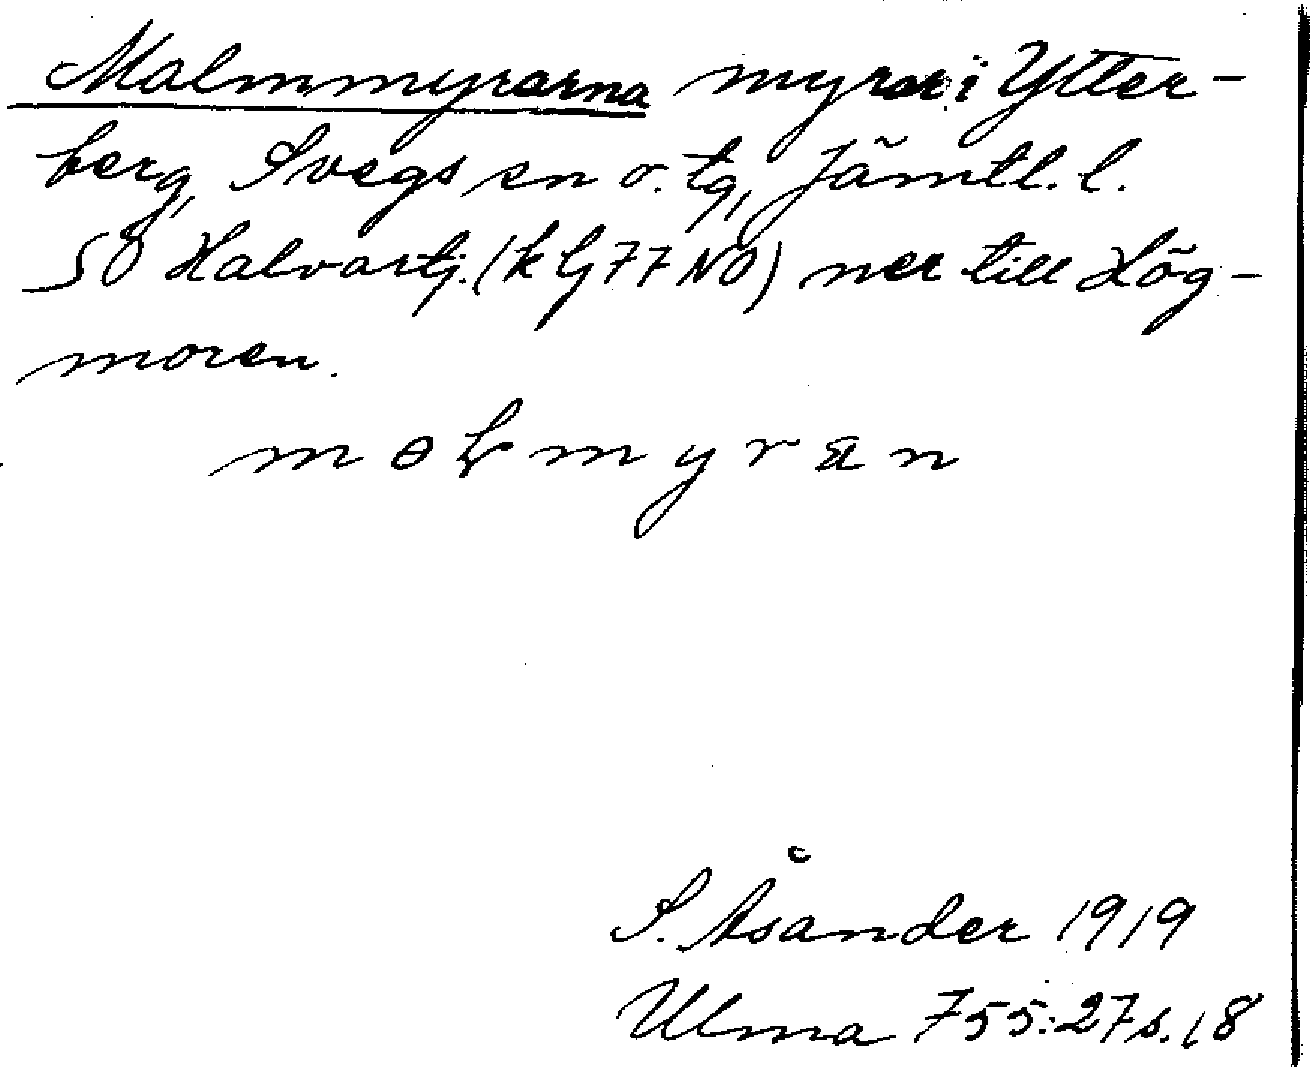 Malmmyrarna myrar i Ytter-
berg, Svegs sn o. tg, Jämtl. l.
SO Halvartj. (k bj 77 NO) ner till Hög-
moren.
S. Åsander 1919
Ulma 755:27 s. 18